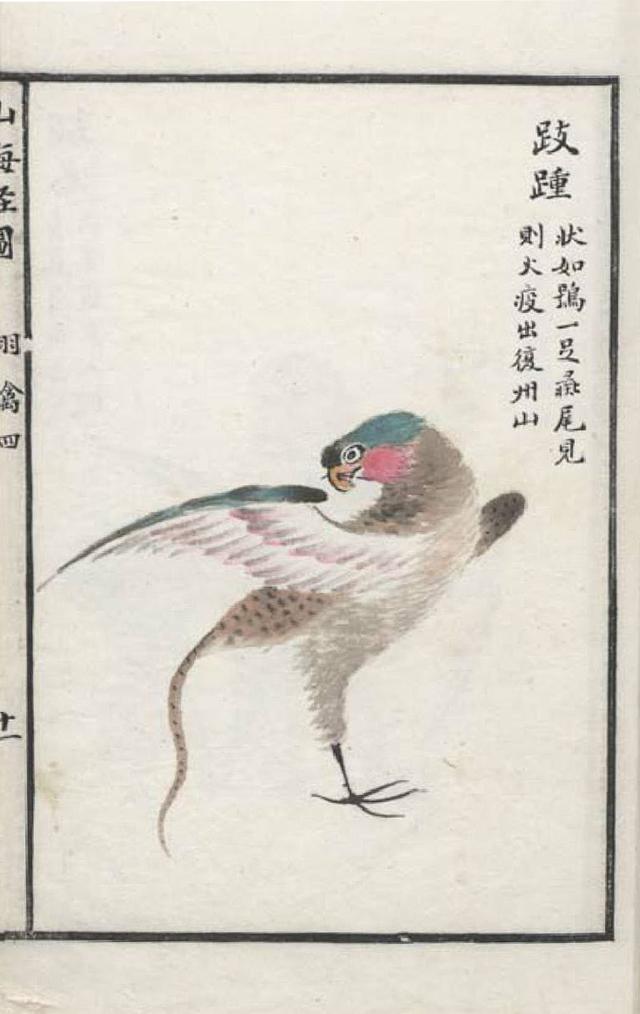 跂踵
狀如鴞一足彘尾見
則大疫出復州山
山海経圖
羽禽四
十一